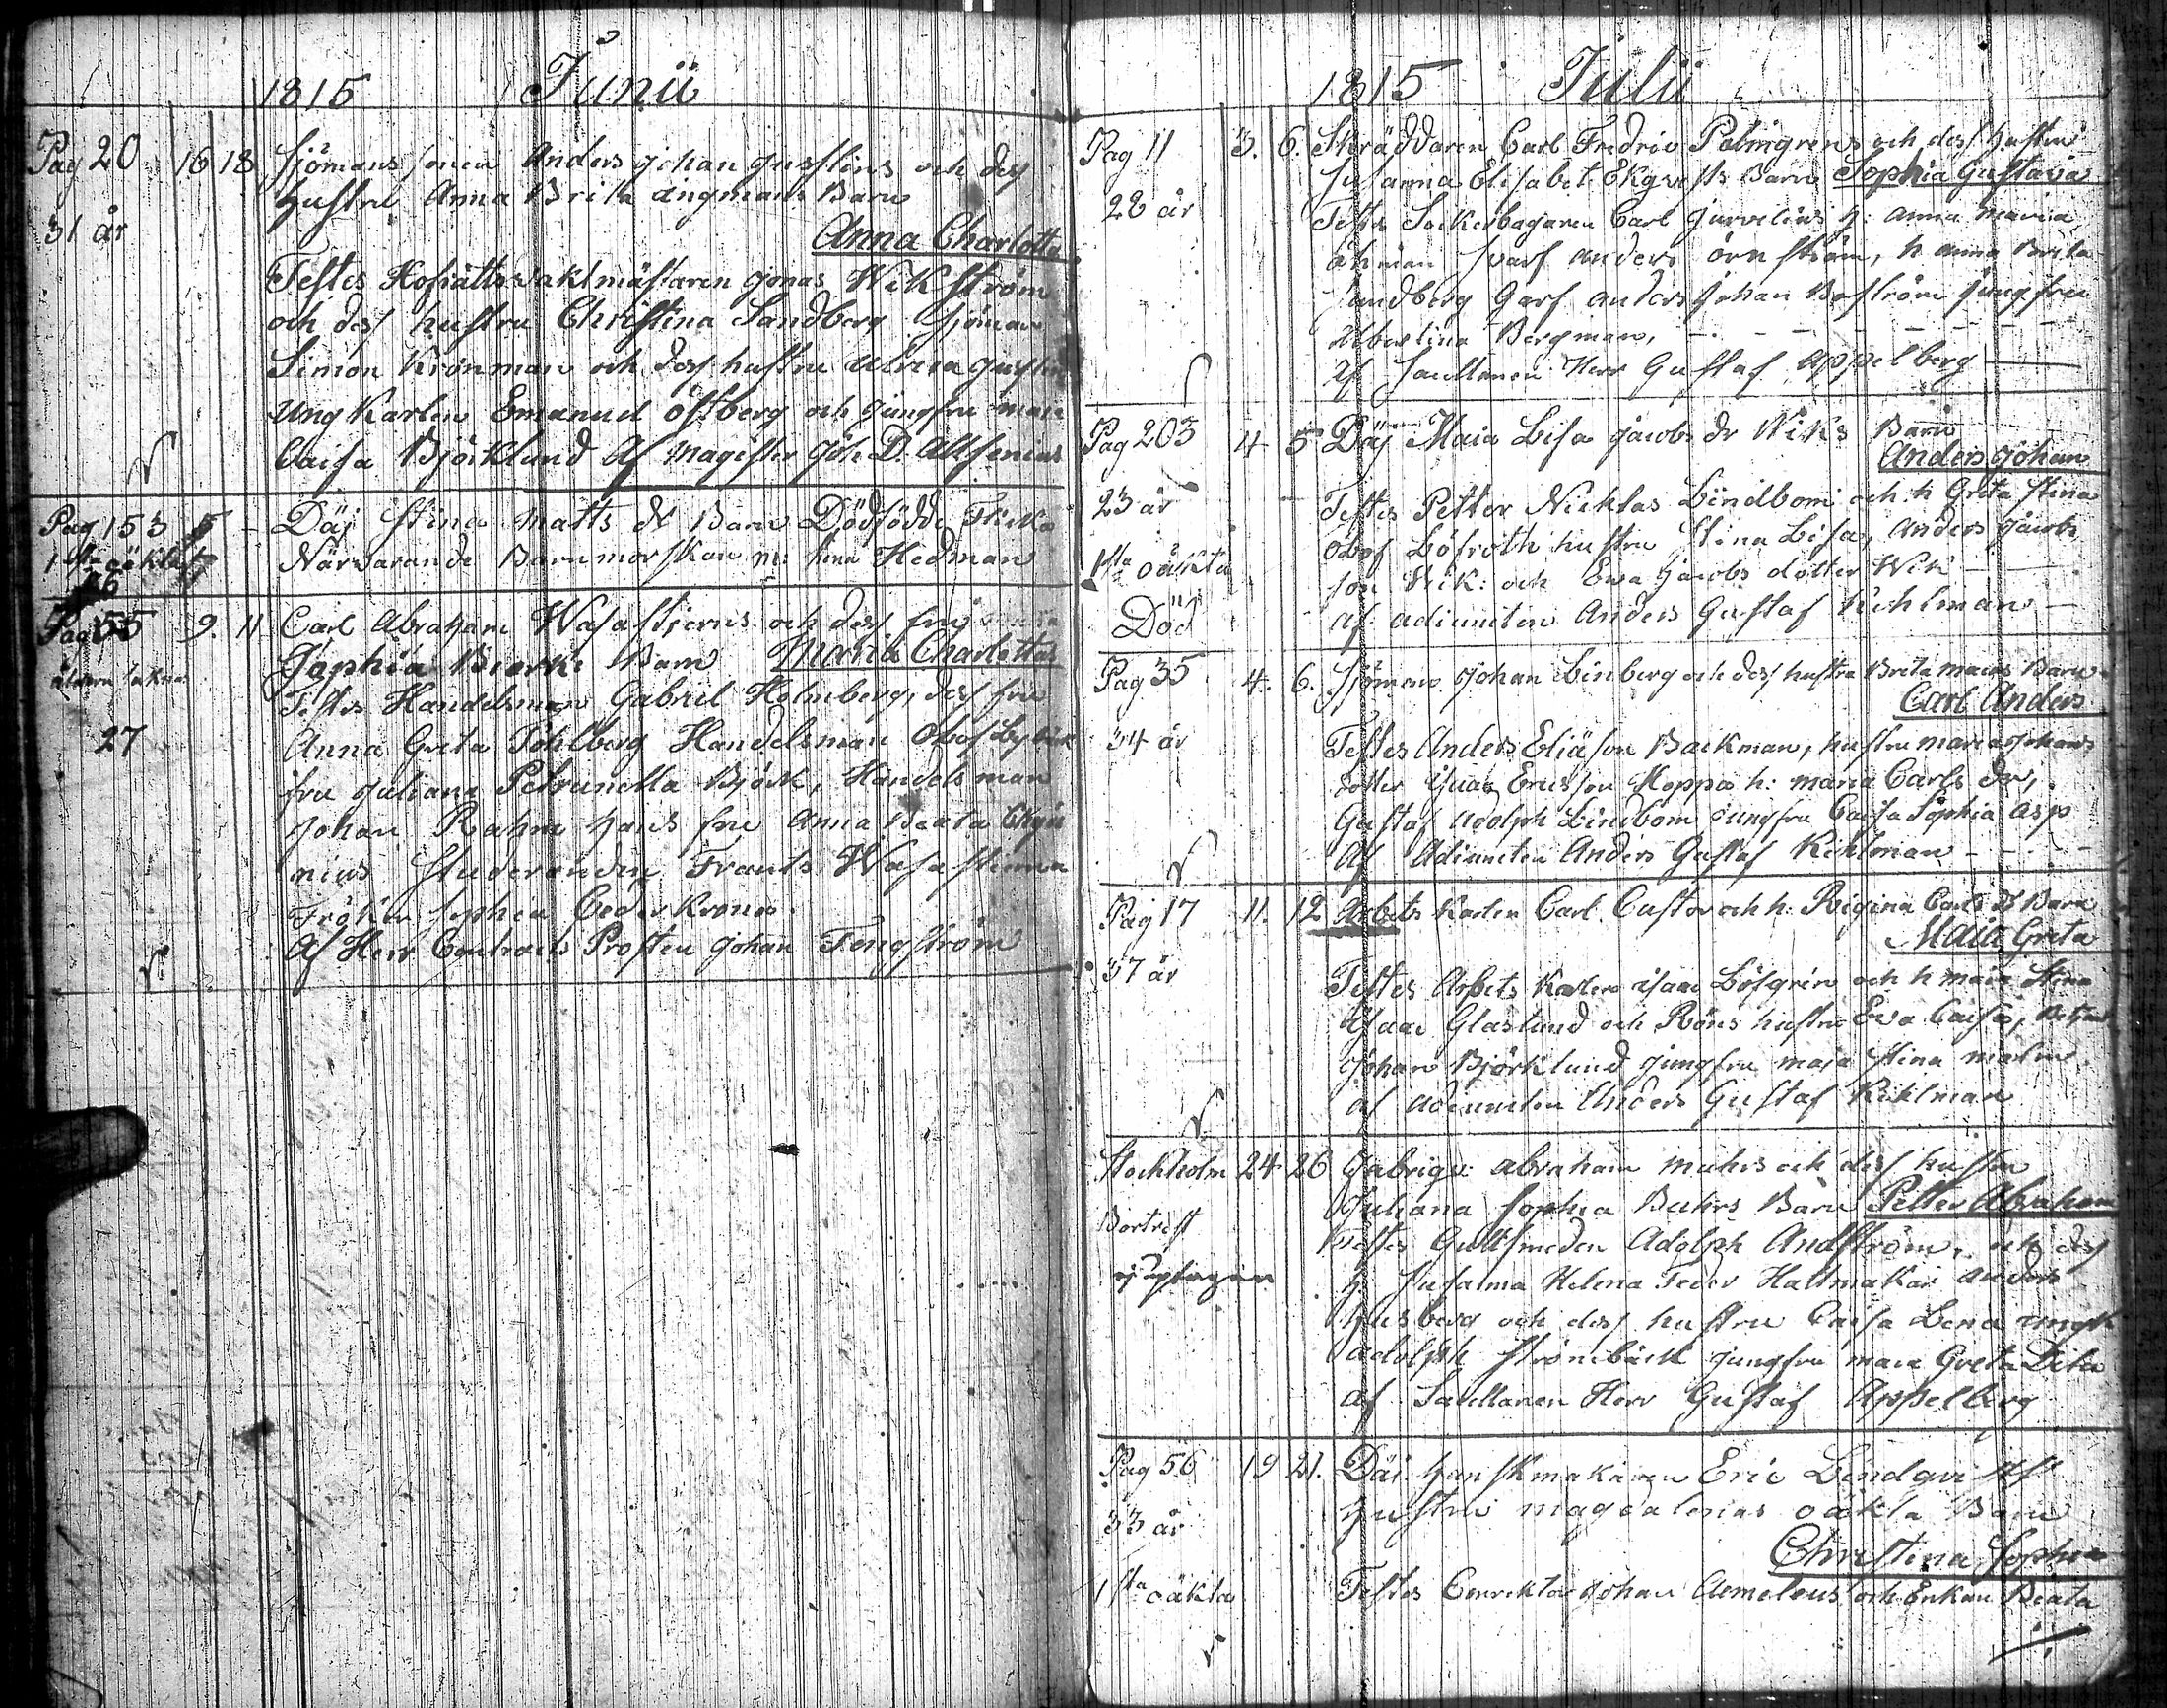 1815 Junii
Pag 20 16 18 Sjömans sonen Anders Johan Gusslins och dess
hustru Anna Brita Ångmans Barn
31 år
Anna Charlotta
Testes Hofrättsvaktmästaren Jonas Wikström
och dess hustru Christina Sandberg Sjöman
Simon Krönman och dess hustru Ulrica
Ung Karlen Emanuel Östberg och Jungfru
Caisa Björklund Af Magister Joh. D. Alcenius
Pag 153 5 - Däj Stina Matts dr Barn Dödfödde Flicka
1sta oäkta
26
Närvarande Barnmorskan Stina Hedman
Pag 55 9. 11 Carl Abraham Wasastjernas och dess fru
Sophia Biörks Barn Maria Charlotta
Testes Handelsman Gabriel Holmberg, dess fru
27
Anna Greta Föhlberg Handelsman
fru Juliana Petrunella Björk, Handelsman
Johan Rahm Hans fru Anna Beata
Studeranden Frants Wasastierna
Fröken Sophia Cederkrona
Af Herr Contracts Prosten Johan Tengström
1815 Julii
Pag 11 3. 6. Skräddaren Carl Fredric Palmgrens och dess hustru
Susanna Elisabet Barn Sophia Gustava
28 år
Testes Sockerbagaren Carl h: Anna Maria
Öhman Svarf Anders Örnström, h Anna Brita
Sandberg Garf Anders Johan Boström Jungfru
Albertina Bergman,
Af Herr Gustaf Appelberg
Pag 203 4 5 Däj Maia Lisa Jacobs dr Wiks Barn
Anders Johan
23 år
Testes Petter Nicklas Lindbom och h Greta Stina
Löfroth hustru Stina Lisa, Anders Jacobs
1sta oäkta
son Wik: och Ewa Jacobs dotter Wik
Död
af adiuncten Anders Gustaf Kihlman
Pag 35 4. 6. Sjöman Johan Linberg och dess hustru Brita Maias Barn
Carl Anders
34 år
Testes Anders Eliæson Backman, hustru Maria Johans
dotter Ericsson Hoppa h: Maria Carls dr,
Gustaf Adolph Lindbom Jungfru Caisa Sophia Asp
Af Adiuncten Anders Gustaf Kihlman
Pag 17 11. 12 Arbets Karlen Carl Custor och h: Rigina Carls dr Barn
Maia Greta
37 år
Testes Arbets Karlen Isaac Löfgren och h Maia Stina
Isaac Glaslund och hustru Ewa Caisa,
Johan Björklund Jungfru Maja Stina
af adiuncten Anders Gustaf Kihlman
Stockholm 24 26 Fabrigs: Abraham och dess hustru
Juliana Sophia Barn Petter Abraham
Bortrest
Testes Gullsmeden Adolph Andström, och dess
ej uptagen
h. Susanna Helena Feder Hattmakar Anders
Husberg och dess hustru Caisa Lena
Adolph Strömbäck Jungfru Maia Greta
af Herr Gustaf Appelberg
Pag 56 19 21. Däj Hanskmakaren Eric Lindqvists
hustru Magdalenas oäkta Barn
33 år
Christina Sophia
1sta oäkta
Testes Conrektor Johan Aemeleus och Enkan Beata